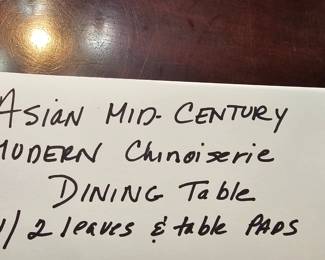 ASIAN MID-CENTURY
MODERN Chinoiserie
DINING Table
w/ 2 leaves & table PADS